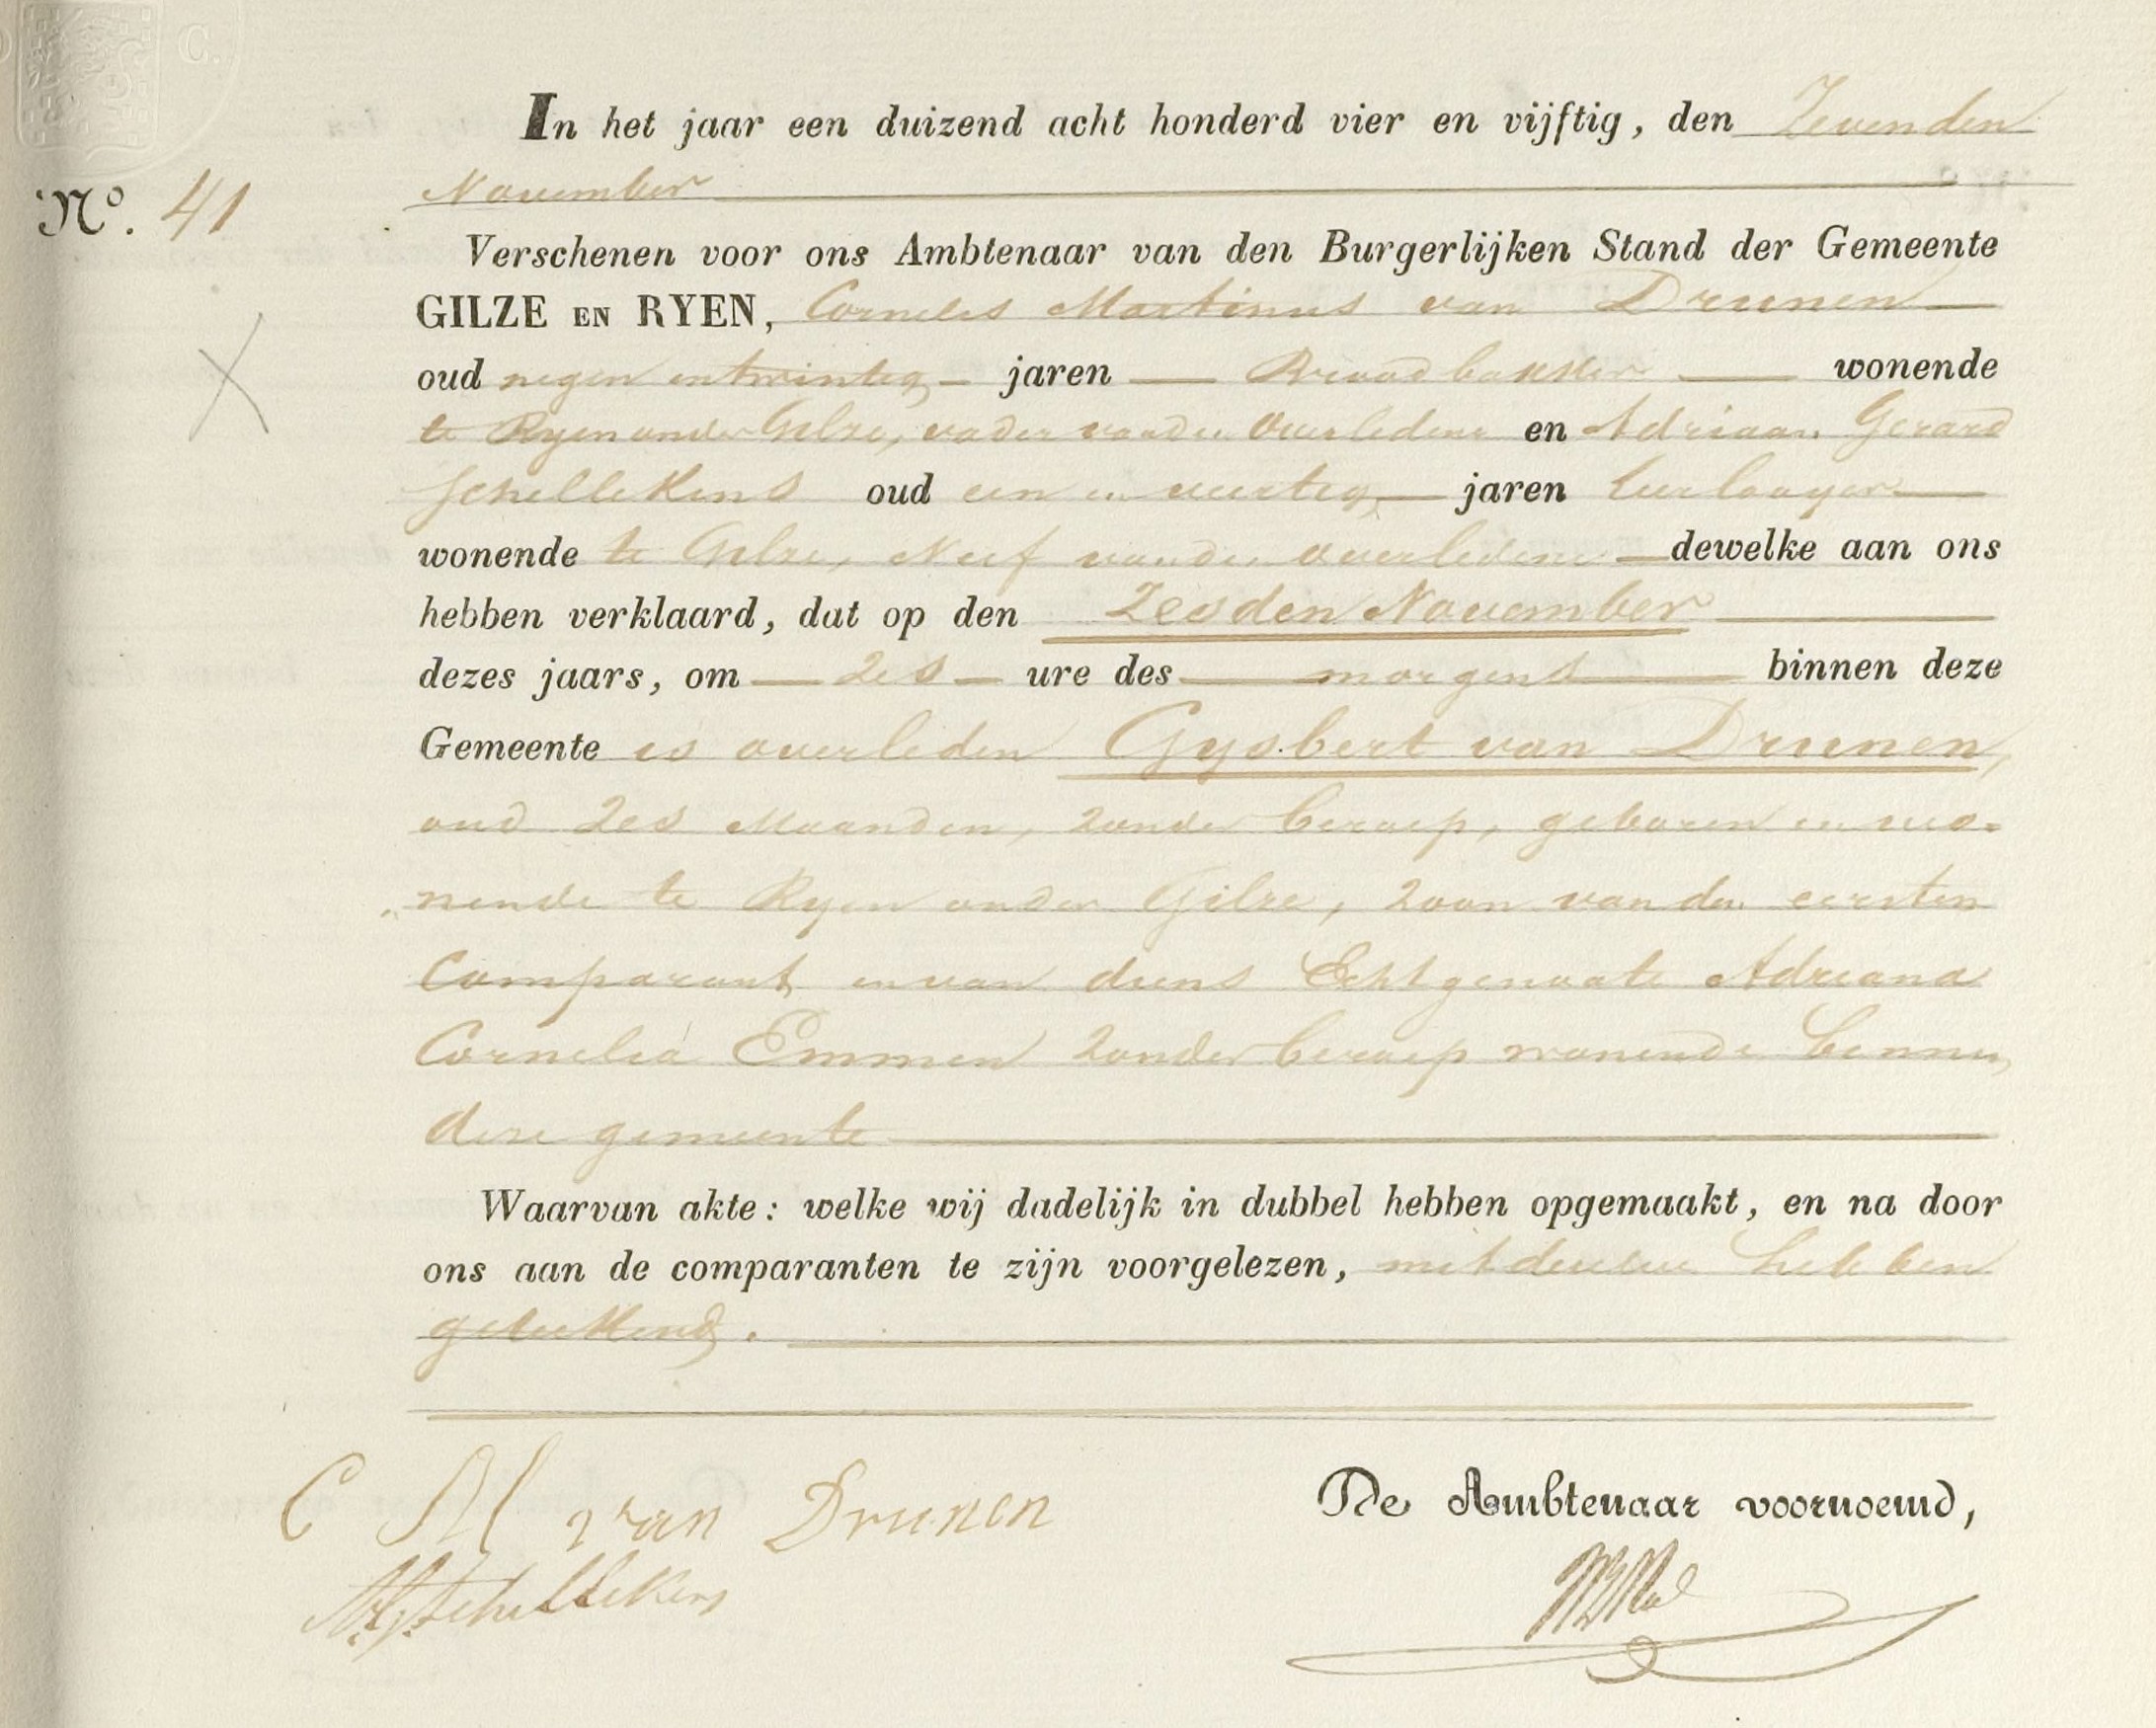 C.
In het jaar een duizend acht honderd vier en vijftig, den Zevenden
November
No. 41
Verschenen voor ons Ambtenaar van den Burgerlijken Stand der Gemeente
GILZE EN RYEN, Cornelis Martinus van Drunen
oud negen entwintig jaren Broodbakker wonende
te Ryen onder Gilze, vader vanden Overledene en Adriaan Gerard
Schellekens oud een en veertig jaren leerlooyer
wonende te Gilze, Neef vanden overledene dewelke aan ons
hebben verklaard, dat op den Zesden November
dezes jaars, om zes ure des morgens binnen deze
Gemeente is overleden Gysbert van Drunen,
oud zes Maanden, zonder beroep, geboren en wo=
"nende te Ryen onder Gilze, zoon vanden eersten
Comparant en van diens Echtgenoote Adriana
Cornelia Emmen zonder beroep wonende binnen
deze gemeente
Waarvan akte: welke wij dadelijk in dubbel hebben opgemaakt, en na door
ons aan de comparanten te zijn voorgelezen, met dezelve hebben
geteekend.
C M van Drunen
A.G. Schellekens
De Ambtenaar voornoemd,